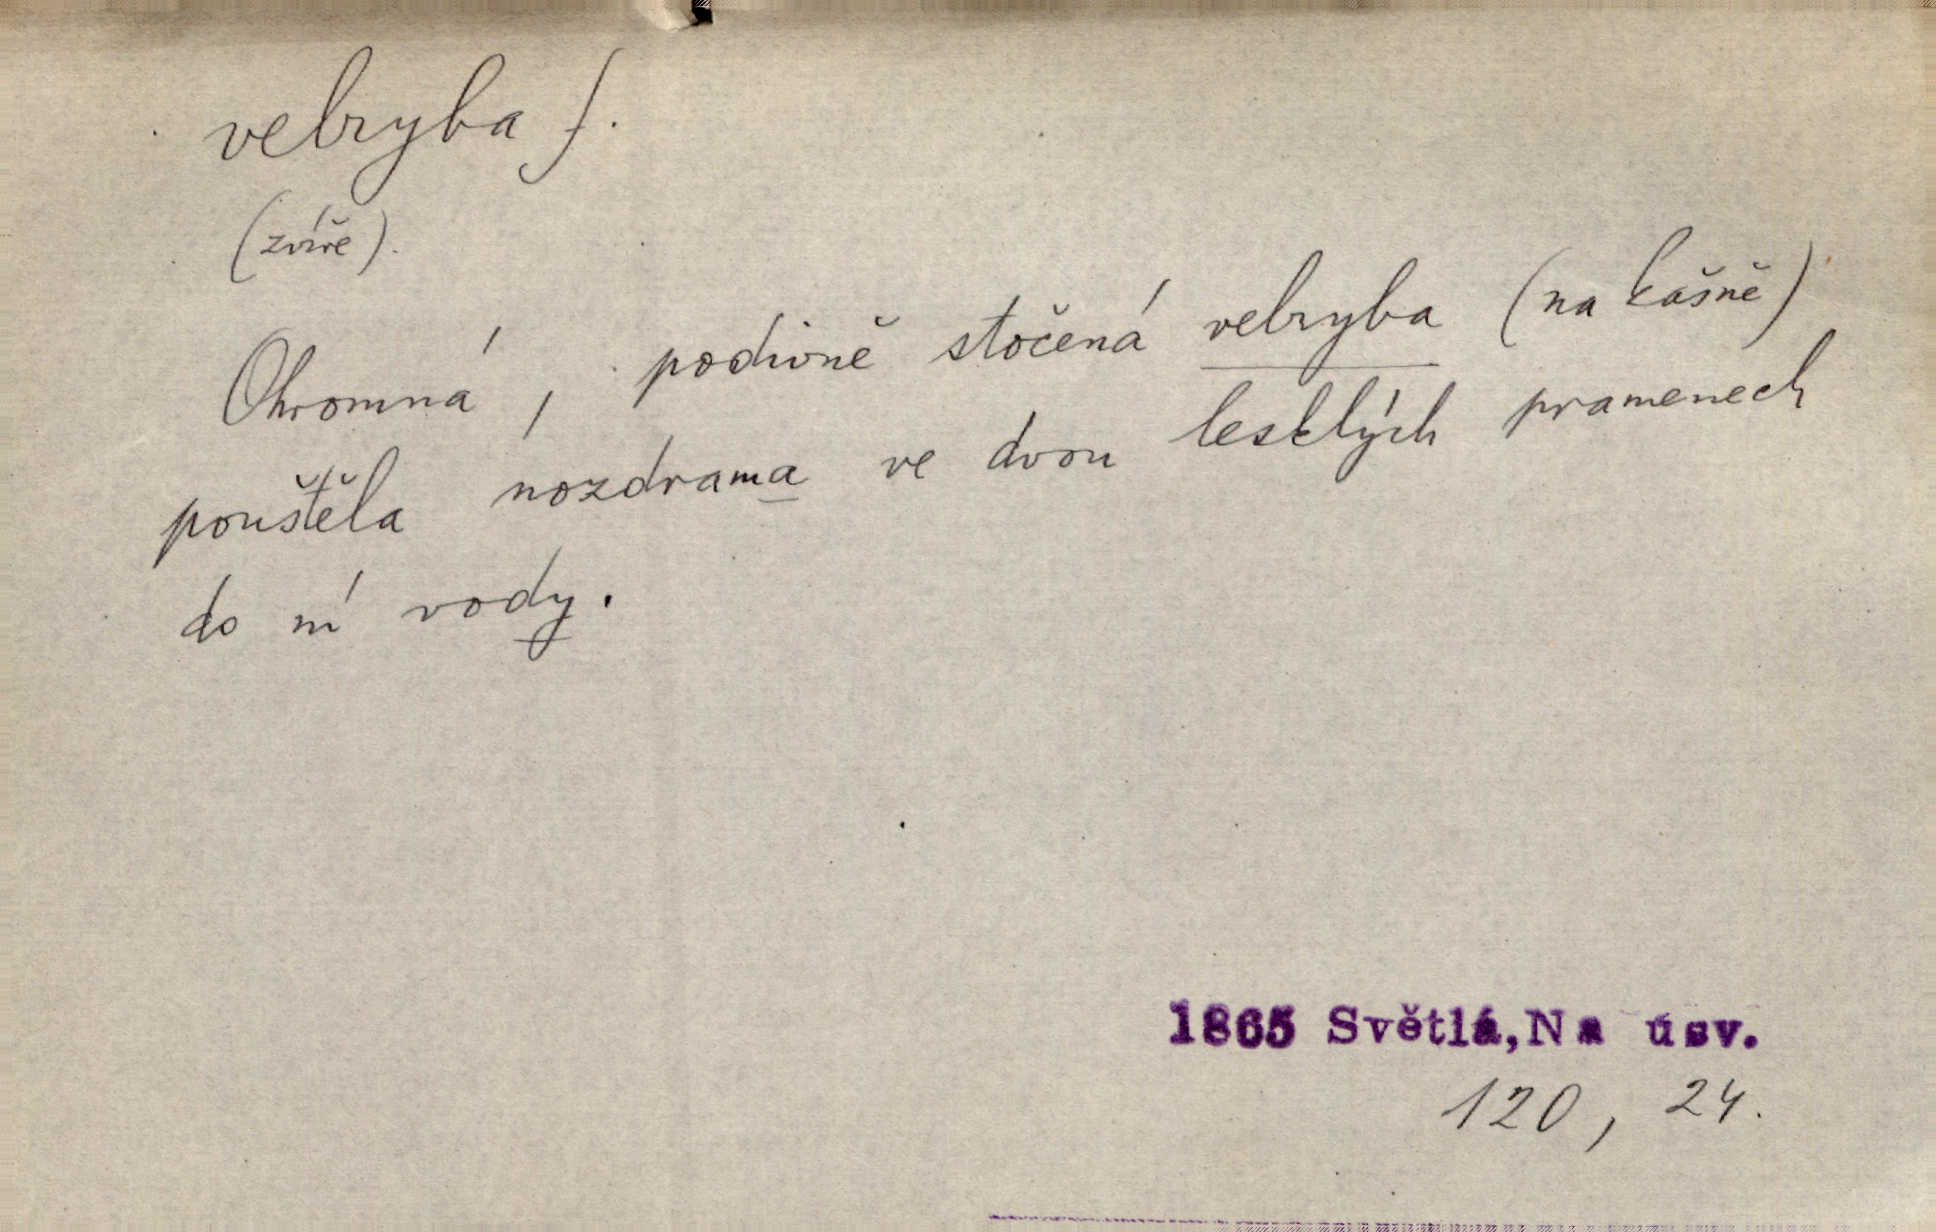 velryba f.
(zvíře).
Ohromná, podivně stočená velryba (na kašně)
pouštěla nozdrama ve dvou lesklých pramenech
do ní vody.
1865 Světlá,Na úsv.
120, 24.